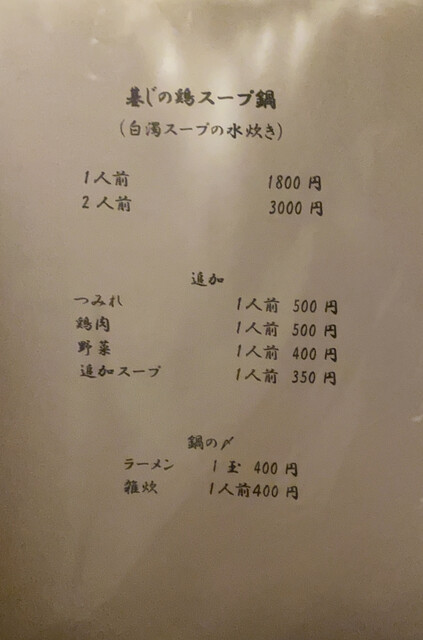 碁じの鶏スープ鍋
(白濁スープの水炊き)
1人前 1800 円
2人前 3000 円
追加
つみれ 1人前 500 円
鶏肉 1人前 500 円
野菜 1人前 400 円
追加スープ 1人前 350 円
鍋の〆
ラーメン 1 玉 400 円
雑炊 1人前400 円